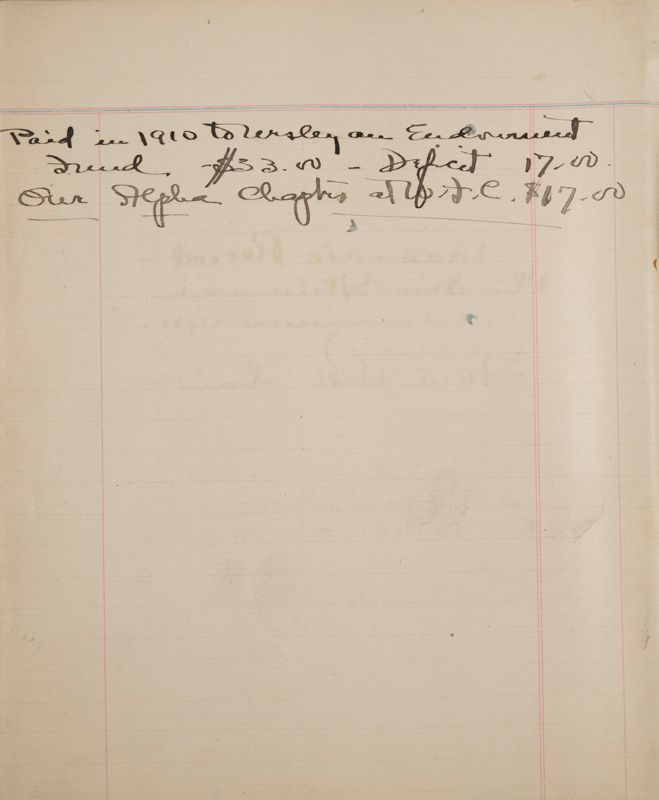 Paid in 1910 to Wesleyan Endowment
Fund $33.00 - Deficit 17.00.
Our Alpha Chapter at W.F.C. $17.00